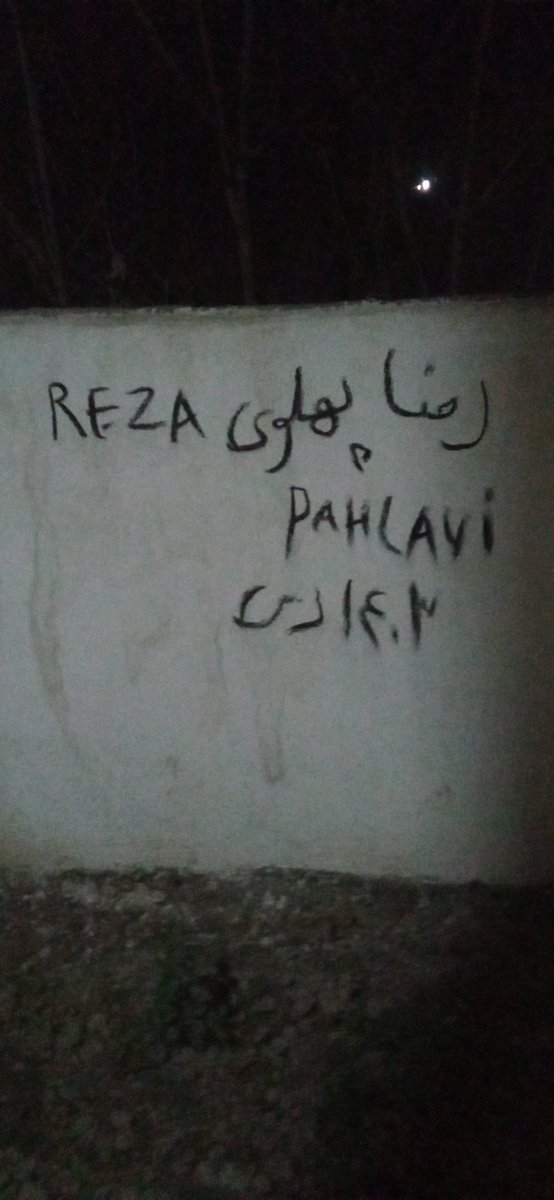 رضا پهلوی REZA
PAHLAVI
۱۴۰۳ دی